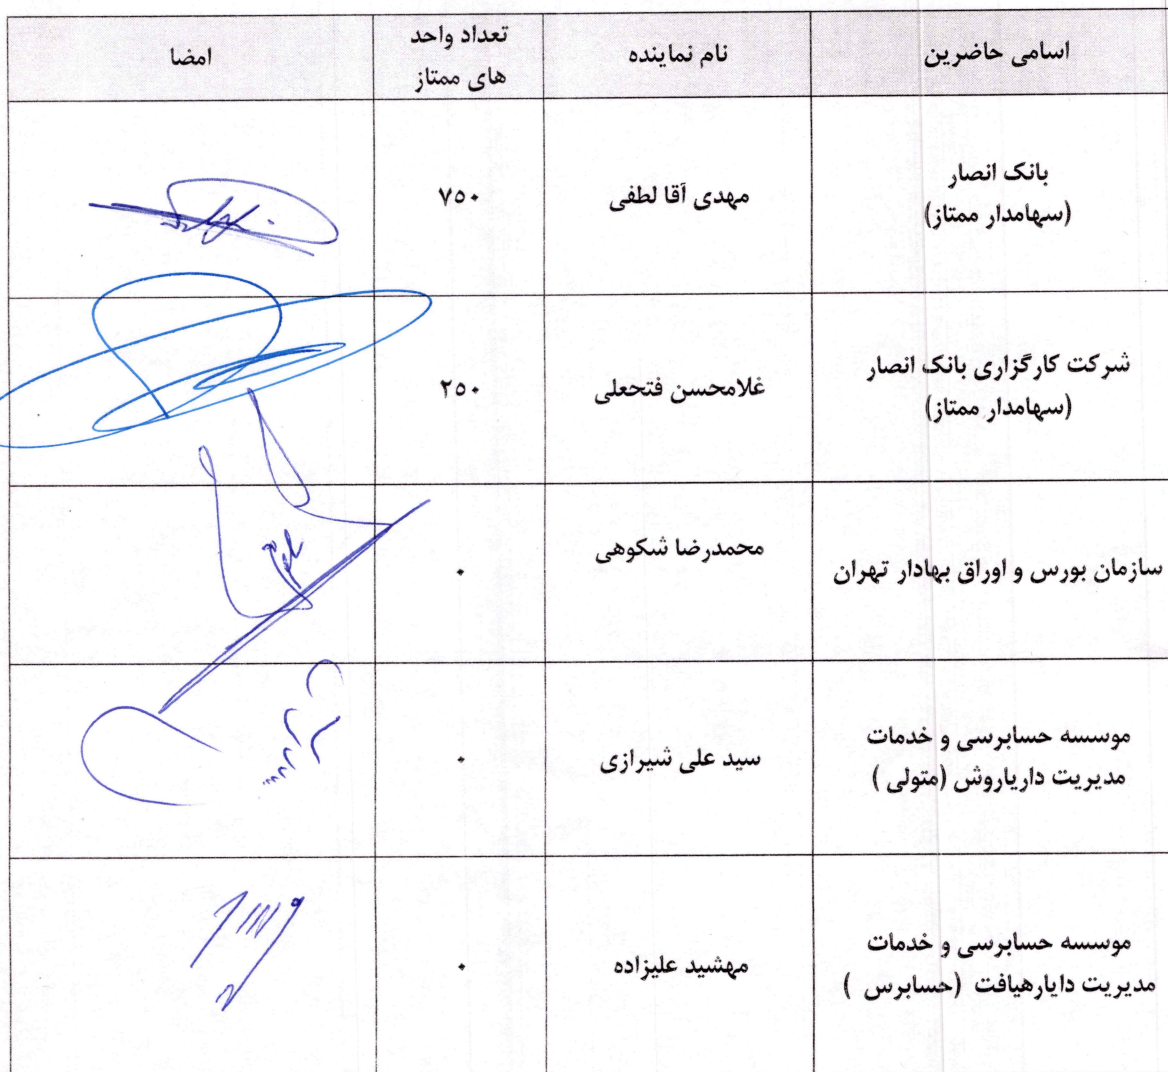 اسامی حاضرین
نام نماینده
تعداد واحد
های ممتاز
امضا
بانک انصار
(سهامدار ممتاز)
مهدی آقا لطفی
۷۵۰
شرکت کارگزاری بانک انصار
(سهامدار ممتاز)
غلامحسن فتحعلی
۲۵۰
سازمان بورس و اوراق بهادار تهران
محمدرضا شکوهی
۰
موسسه حسابرسی و خدمات
مدیریت داریاروش (متولی )
سید علی شیرازی
۰
موسسه حسابرسی و خدمات
مدیریت دایارهیافت (حسابرس )
مهشید علیزاده
۰